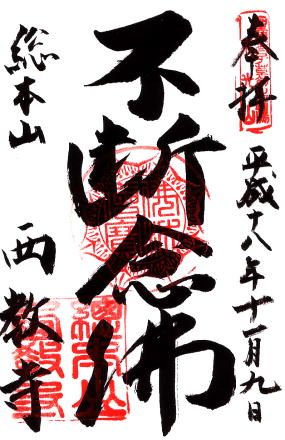 奉拝
平成十八年十一月九日
不断念佛
総本山
西教寺